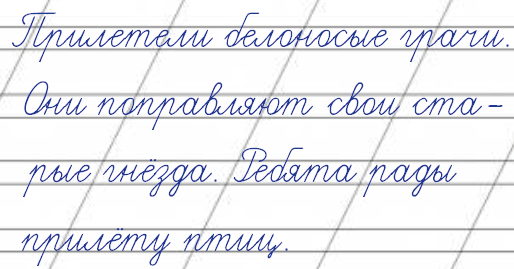 Прилетели белоносые грачи.
Они поправляют свои ста-
рые гнёзда. Ребята рады
прилёту птиц.